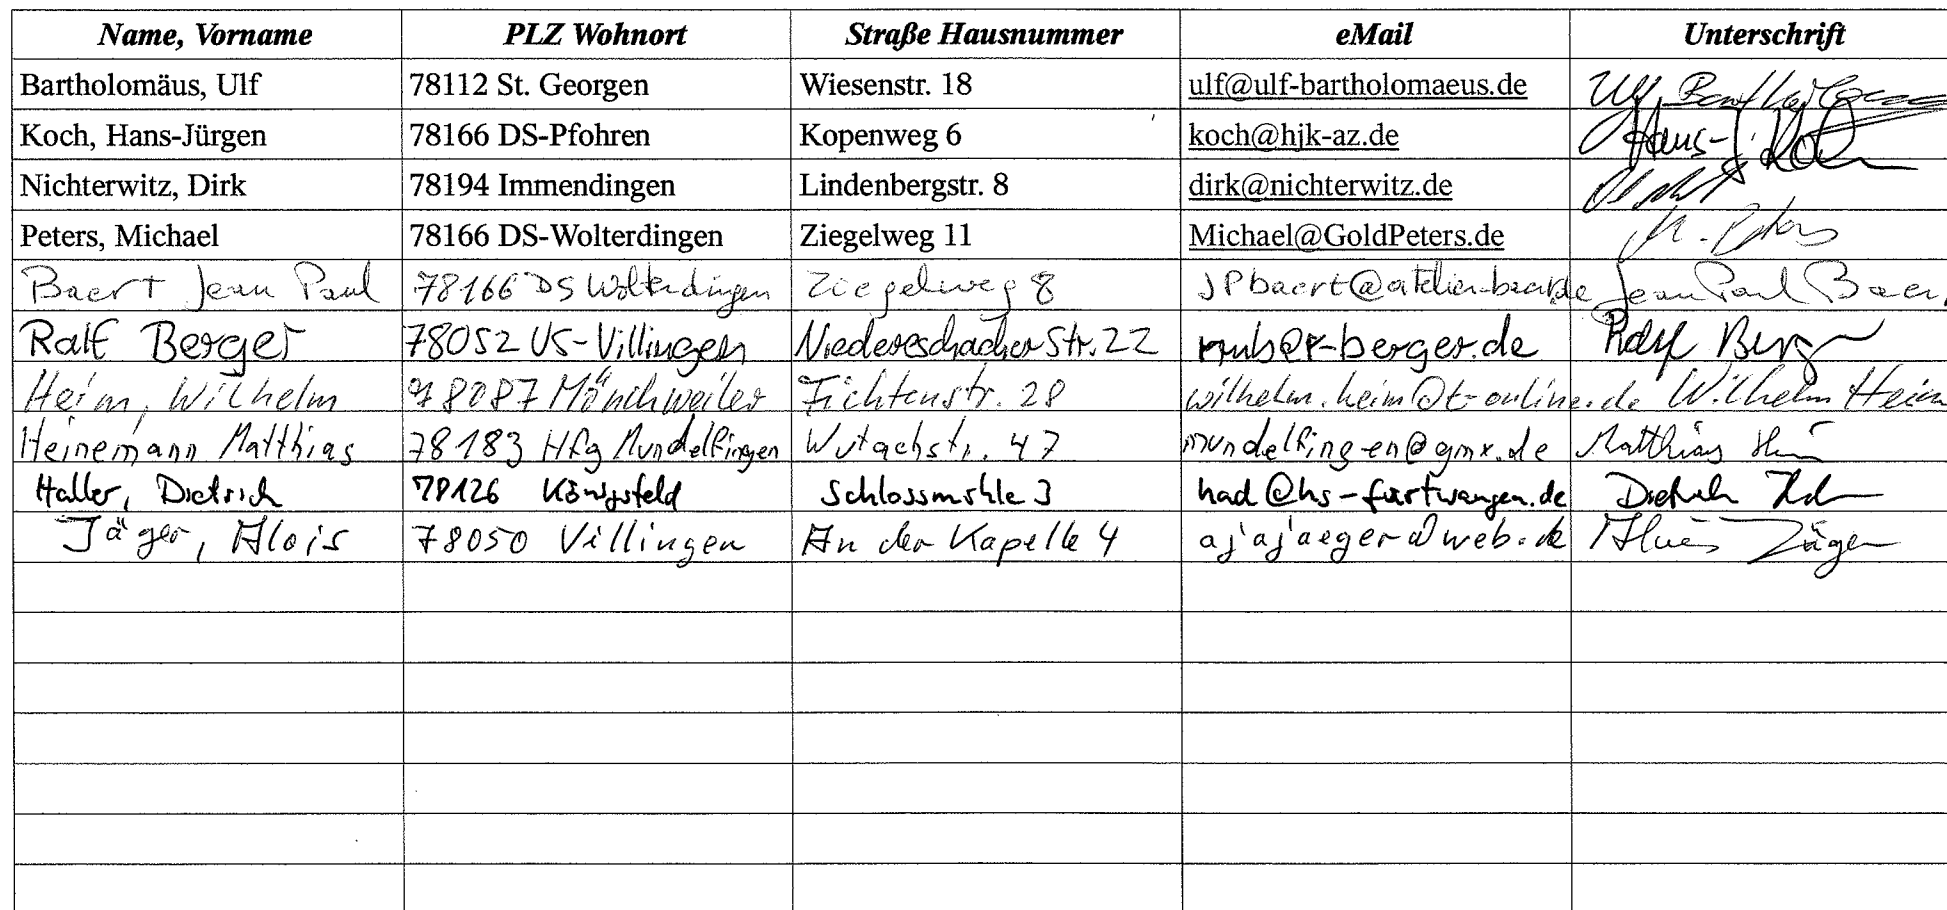 Name, Vorname PLZ Wohnort Straße Hausnummer eMail Unterschrift
Bartholomäus, Ulf 78112 St. Georgen Wiesenstr. 18 ulf@ulf-bartholomaeus.de
Koch, Hans-Jürgen 78166 DS-Pfohren Kopenweg 6 koch@hjk-az.de Hans-J. Koch
Nichterwitz, Dirk 78194 Immendingen Lindenbergstr. 8 dirk@nichterwitz.de
Peters, Michael 78166 DS-Wolterdingen Ziegelweg 11 Michael@GoldPeters.de M. Peters
Baert Jean Paul 78166 DS Wolterdingen Ziegelweg 8 JPbaert@atelier-baert.de Jean Paul Baert
Ralf Berger 78052 VS-Villingen Niedereschacher Str. 22 Ralf Berger
Heim, Wilhelm 78087 Mönchweiler Fichtenstr. 28 wilhelm.heim@t-online.de Wilhelm Heim
Heinemann Matthias 78183 Hfg Mundelfingen Wutachstr. 47 mundelfingen@gmx.de Matthias
Haller, Dietrich 78126 Königsfeld Schlossmühle 3 had@hs-furtwangen.de Dietrich
Jäger, Alois 78050 Villingen An der Kapelle 4 ajajaeger@web.de Alois Jäger